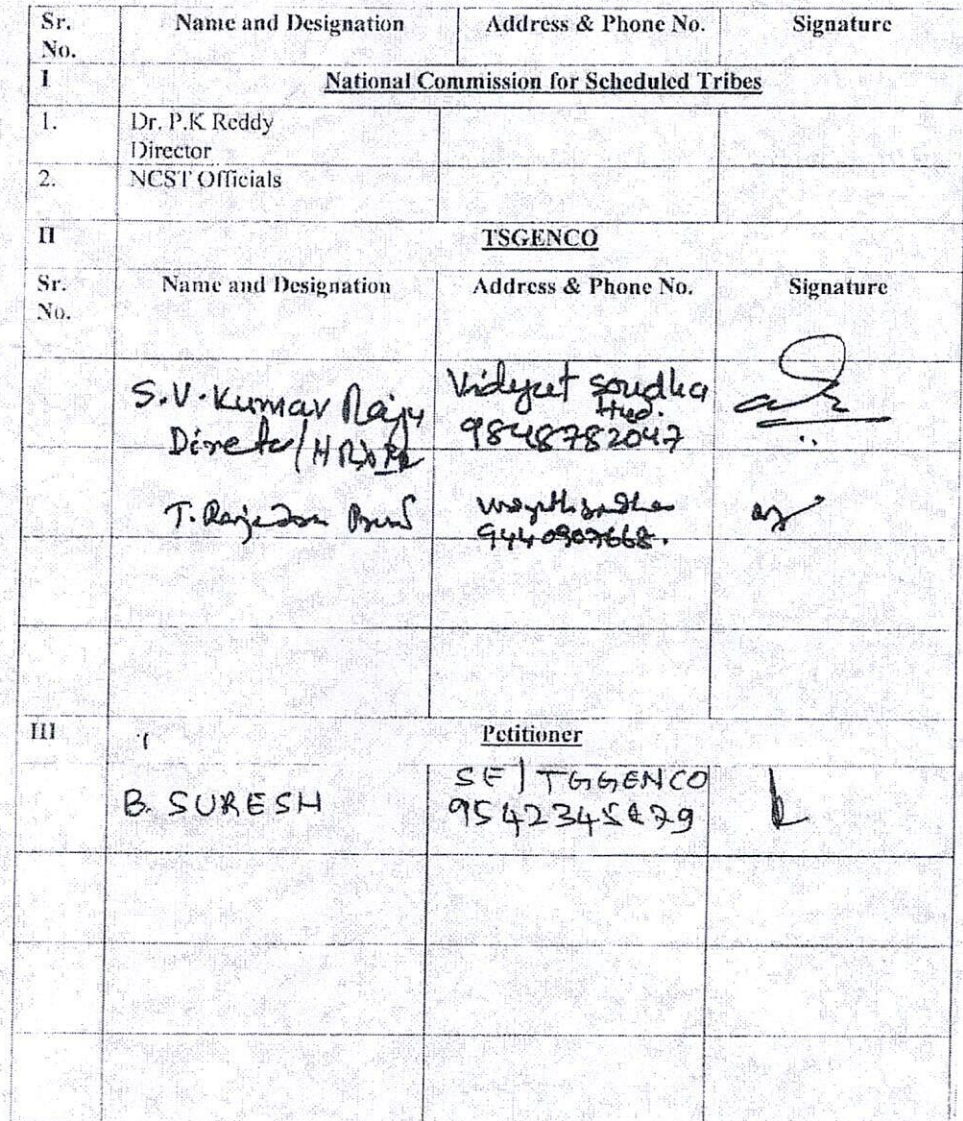 Sr. No. Name and Designation Address & Phone No. Signature
I National Commission for Scheduled Tribes
1. Dr. P.K Reddy
Director
2. NCST Officials
II TSGENCO
Sr. No. Name and Designation Address & Phone No. Signature
S.V. Kumar Raju Vidyut Soudha
Hyd.
Director/HR 9848782047
T.
9440907668.
III Petitioner
B. SURESH SE | TGGENCO